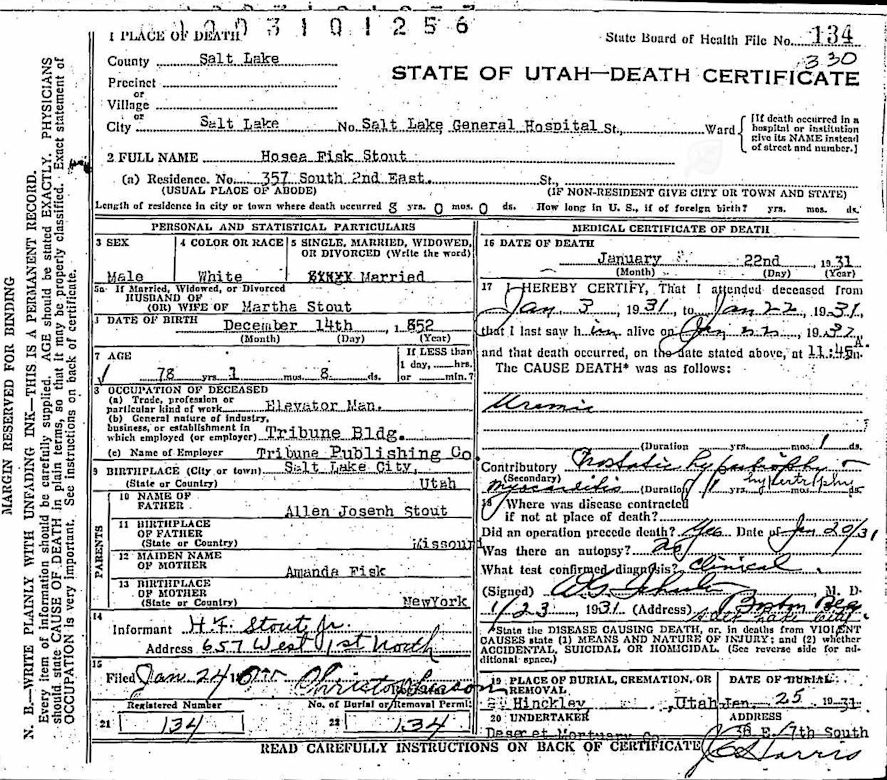 1003101256
1 PLACE OF DEATH
State Board of Health File No. 134
330
County Salt Lake
STATE OF UTAH—DEATH CERTIFICATE
Precinct
or
Village
or
City Salt Lake No. Salt Lake General Hospital St., Ward
[If death occurred in a hospital or institution give its NAME instead of street and number.]
2 FULL NAME Hosea Fisk Stout
(a) Residence. No. 357 South 2nd East. St.
(USUAL PLACE OF ABODE) (IF NON-RESIDENT GIVE CITY OR TOWN AND STATE)
Length of residence in city or town where death occurred 8 yrs. 0 mos. 0 ds. How long in U. S., if of foreign birth? yrs. mos. ds.
PERSONAL AND STATISTICAL PARTICULARS
3 SEX
Male
4 COLOR OR RACE
White
5 SINGLE, MARRIED, WIDOWED,
OR DIVORCED (Write the word)
Married
5a If Married, Widowed, or Divorced
HUSBAND OF
(OR) WIFE OF Martha Stout
DATE OF BIRTH December 14th, 1852
(Month) (Day) (Year)
7 AGE
78 yrs. 1 mos. 8 ds.
If LESS than
1 day, hrs.
or min.?
8 OCCUPATION OF DECEASED
(a) Trade, profession or
particular kind of work Elevator Man.
(b) General nature of industry,
business, or establishment in
which employed (or employer) Tribune Bldg.
(c) Name of Employer Tribune Publishing Co.
9 BIRTHPLACE (City or town) Salt Lake City,
(State or Country) Utah
PARENTS
10 NAME OF
FATHER Allen Joseph Stout
11 BIRTHPLACE
OF FATHER
(State or Country) Missour
12 MAIDEN NAME
OF MOTHER Amanda Fisk
13 BIRTHPLACE
OF MOTHER
(State or Country) NewYork
14
Informant H. F. Stout Jr.
Address 657 West 1st North
15
Filed Jan 24
Registered Number
21 134
No. of Burial or Removal Permit
22 134
MEDICAL CERTIFICATE OF DEATH
16 DATE OF DEATH
January 22nd 1931
(Month) (Day) (Year)
17 I HEREBY CERTIFY, That I attended deceased from
Jan 3, 1931, to Jan 22, 1931,
that I last saw him alive on Jan 22, 19
and that death occurred, on the date stated above, at 11:45 A m.
The CAUSE DEATH* was as follows:
Uremia
(Duration yrs. mos. 1 ds.
Contributory Prostatic hypertrophy
(Secondary) hypertrophy
myocarditis (Duration yrs. mos. ds.
18 Where was disease contracted
if not at place of death?
Did an operation precede death? Yes Date of Jan 20/31
Was there an autopsy? no
What test confirmed diagnosis? Clinical
(Signed) M. D.
1/23, 1931 (Address) Boston Bldg
Salt Lake City
*State the DISEASE CAUSING DEATH, or, in deaths from VIOLENT
CAUSES state (1) MEANS AND NATURE OF INJURY; and (2) whether
ACCIDENTAL, SUICIDAL OR HOMICIDAL. (See reverse side for ad-
ditional space.)
19 PLACE OF BURIAL, CREMATION, OR
REMOVAL
Hinckley, Utah
DATE OF BURIAL
Jan. 25 1931
20 UNDERTAKER
Deseret Mortuary Co
ADDRESS
36 E. 7th South
READ CAREFULLY INSTRUCTIONS ON BACK OF CERTIFICATE
MARGIN RESERVED FOR BINDING
N. B.—WRITE PLAINLY WITH UNFADING INK—THIS IS A PERMANENT RECORD.
Every item of information should be carefully supplied. AGE should be stated EXACTLY. PHYSICIANS
should state CAUSE OF DEATH in plain terms, so that it may be properly classified. Exact statement of
OCCUPATION is very important. See instructions on back of certificate.